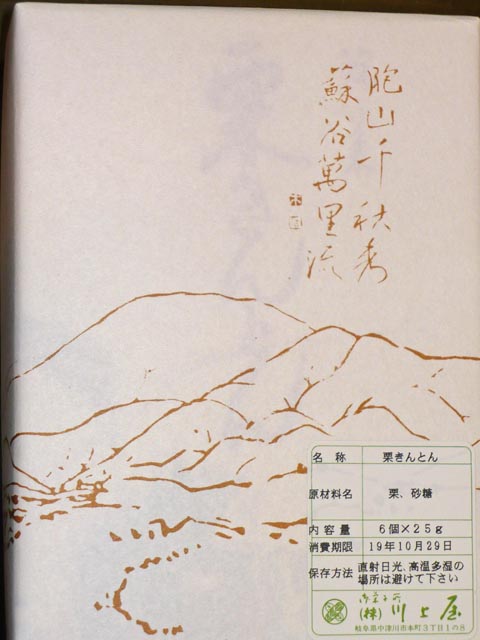 胞山千秋秀
蘇谷萬里流
名 称 栗きんとん
原材料名 栗、砂糖
内容量 6個×25g
消費期限 19年10月29日
保存方法 直射日光、高温多湿の
場所は避けて下さい
御菓子所
(株) 川上屋
岐阜県中津川市本町3丁目1の8